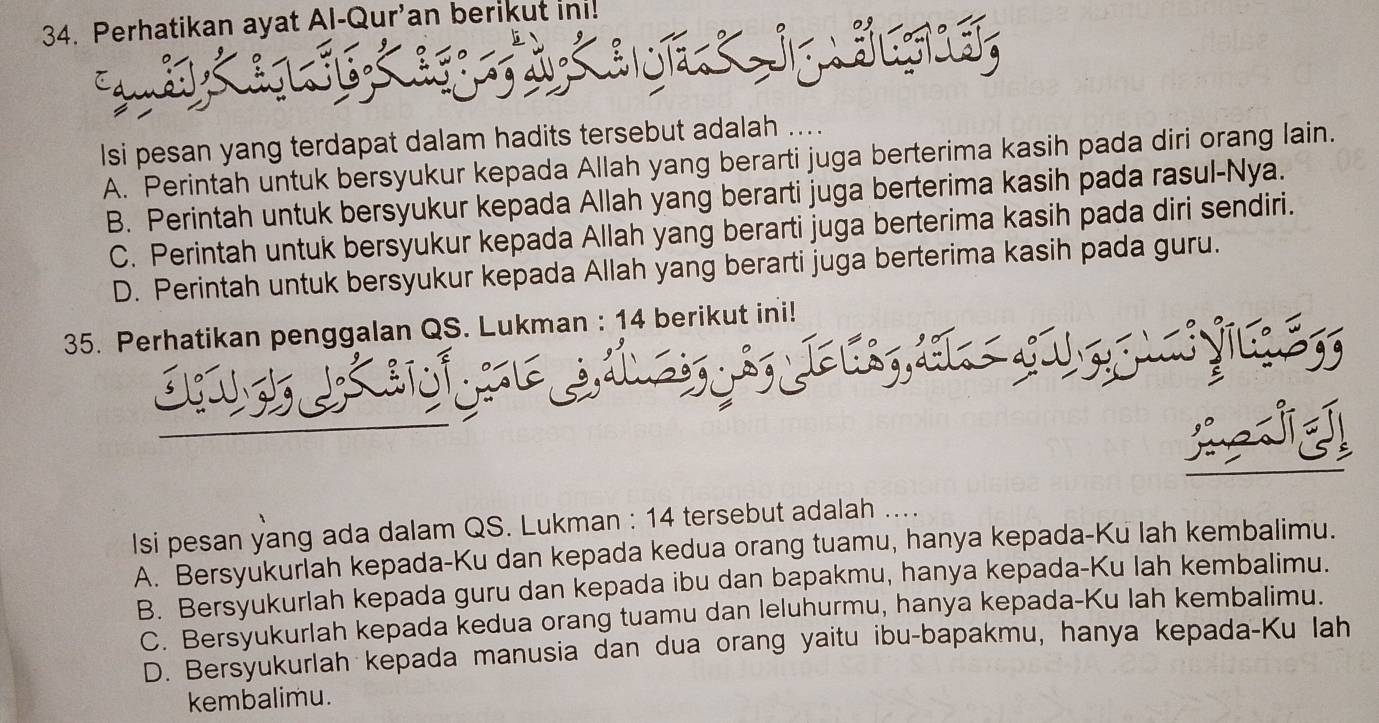 34. Perhatikan ayat Al-Qur'an berikut ini!
وَلَقَدْ اٰتَيْنَا لُقْمٰنَ الْحِكْمَةَ اَنِ اشْكُرْ لِلّٰهِ ۗوَمَنْ يَّشْكُرْ فَاِنَّمَا يَشْكُرُ لِنَفْسِهٖۚ
Isi pesan yang terdapat dalam hadits tersebut adalah ....
A. Perintah untuk bersyukur kepada Allah yang berarti juga berterima kasih pada diri orang lain.
B. Perintah untuk bersyukur kepada Allah yang berarti juga berterima kasih pada rasul-Nya.
C. Perintah untuk bersyukur kepada Allah yang berarti juga berterima kasih pada diri sendiri.
D. Perintah untuk bersyukur kepada Allah yang berarti juga berterima kasih pada guru.
35. Perhatikan penggalan QS. Lukman : 14 berikut ini!
وَوَصَّيْنَا الْاِنْسَانَ بِوَالِدَيْهِ حَمَلَتْهُ اُمُّهٗ وَهْنًا عَلٰى وَهْنٍ وَّفِصَالُهٗ فِيْ عَامَيْنِ اَنِ اشْكُرْ لِيْ وَلِوَالِدَيْكَ
اِلَيَّ الْمَصِيْرُ
Isi pesan yang ada dalam QS. Lukman : 14 tersebut adalah ....
A. Bersyukurlah kepada-Ku dan kepada kedua orang tuamu, hanya kepada-Ku lah kembalimu.
B. Bersyukurlah kepada guru dan kepada ibu dan bapakmu, hanya kepada-Ku lah kembalimu.
C. Bersyukurlah kepada kedua orang tuamu dan leluhurmu, hanya kepada-Ku lah kembalimu.
D. Bersyukurlah kepada manusia dan dua orang yaitu ibu-bapakmu, hanya kepada-Ku lah
kembalimu.